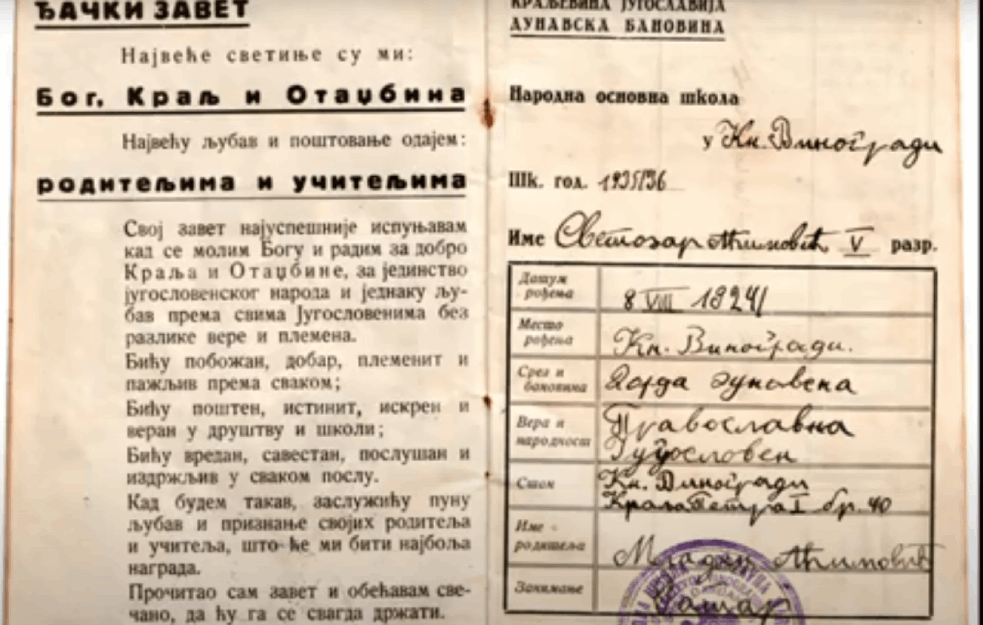 ЂАЧКИ ЗАВЕТ
Највеће светиње су ми:
Бог, Краљ и Отаџбина
Највећу љубав и поштовање одајем:
родитељима и учитељима
Свој завет најуспешније испуњавам
кад се молим Богу и радим за добро
Краља и Отаџбине, за јединство
југословенског народа и једнаку љу-
бав према свима Југословенима без
разлике вере и племена.
Бићу побожан, добар, племенит и
пажљив према сваком;
Бићу поштен, истинит, искрен и
веран у друштву и школи;
Бићу вредан, савестан, послушан и
издржљив у сваком послу.
Кад будем такав, заслужићу пуну
љубав и признање својих родитеља
и учитеља, што ће ми бити најбоља
награда.
Прочитао сам завет и обећавам све-
чано, да ћу га се свагда држати.
КРАЉЕВИНА ЈУГОСЛАВИЈА
ДУНАВСКА БАНОВИНА
Народна основна школа
у Кн. Виногради
Шк. год. 1935/36
Име Светозар V разр.
Датум рођења 8 VIII 1924
Место рођења Кн. Виногради.
Срез и бановина Дарда дунавска
Вера и народност Православна
Југословен
Стан Кн. Виногради
Краља Петра I бр. 40
Име родитеља
Занимање